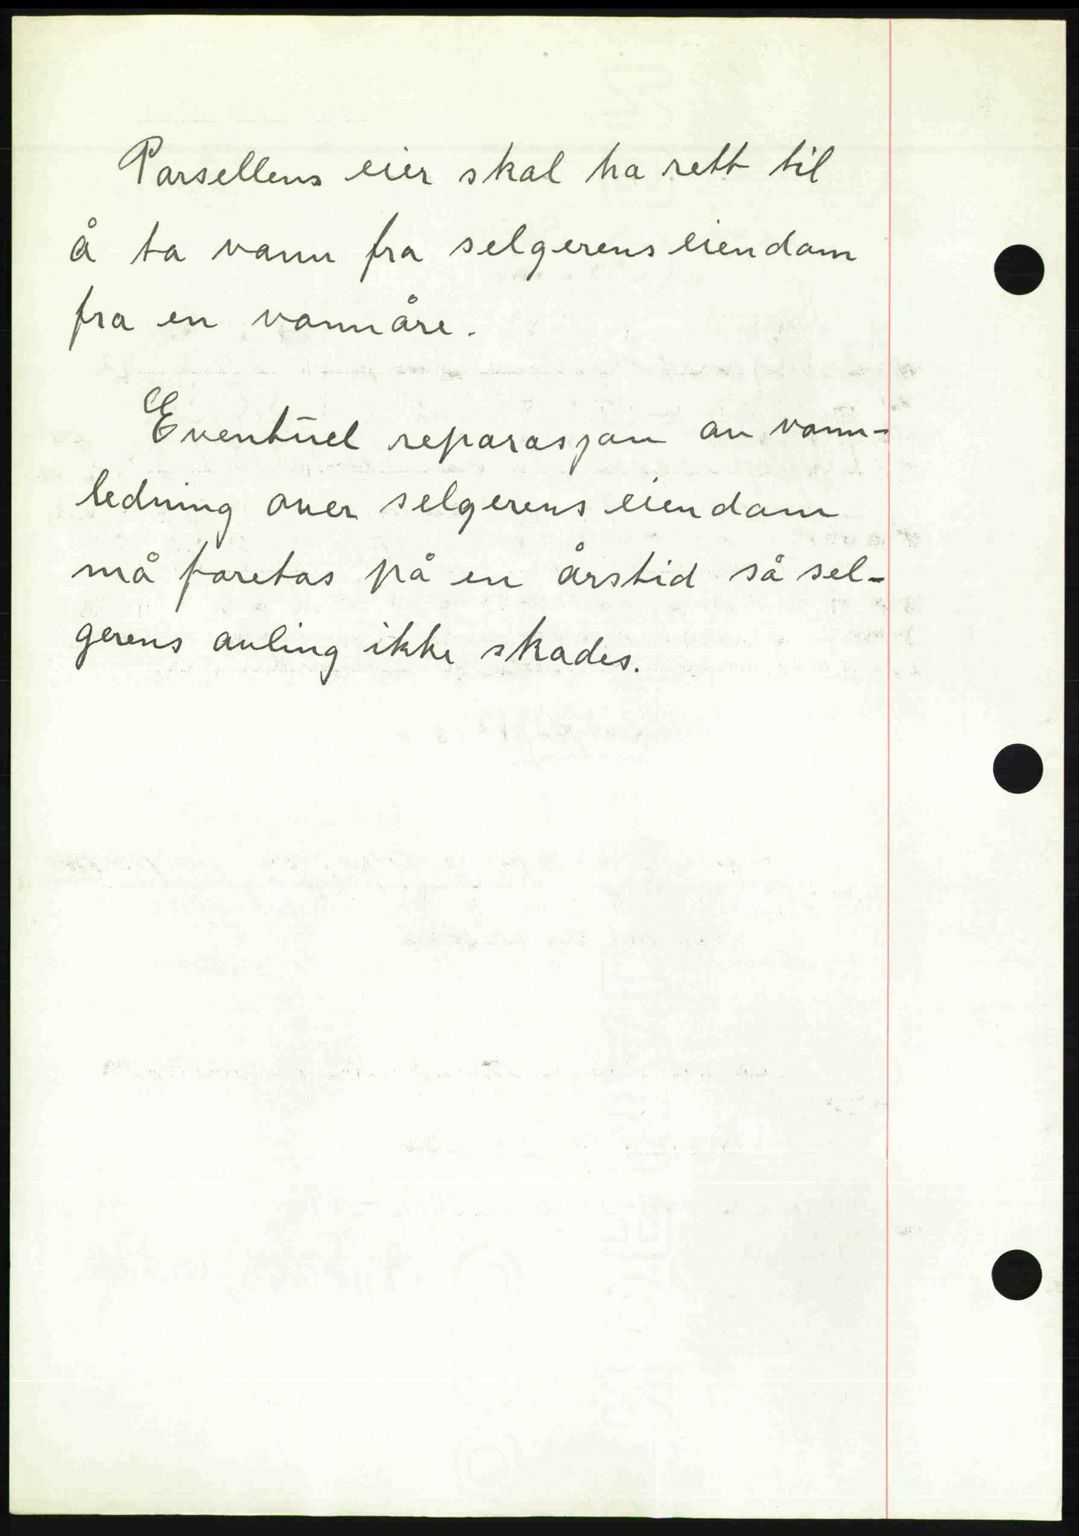 Parsellens eier skal ha rett til
å ta vann fra selgerens eiendom
fra en vannåre.
Eventuel reparasjon av vann-
ledning over selgerens eiendom
må foretas på en årstid så sel-
gerens avling ikke skades.